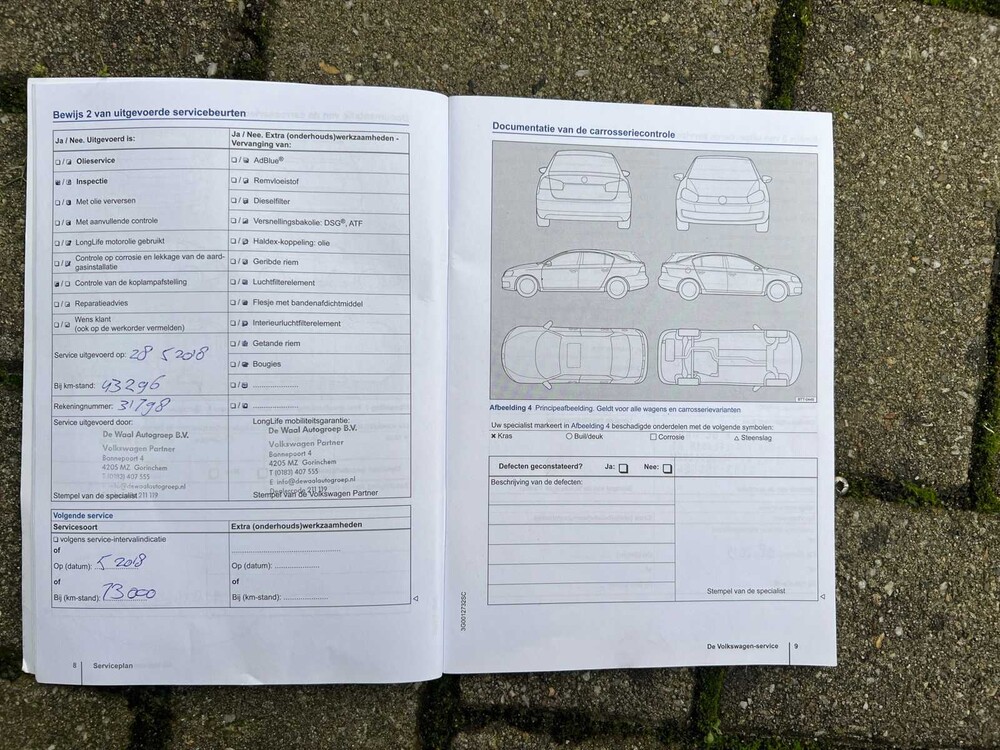 Bewijs 2 van uitgevoerde servicebeurten
Ja / Nee. Uitgevoerd is:
Olieservice
Inspectie
Met olie verversen
Met aanvullende controle
LongLife motorolie gebruikt
Controle op corrosie en lekkage van de aard-
gasinstallatie
Controle van de koplampafstelling
Reparatieadvies
Wens klant
(ook op de werkorder vermelden)
Service uitgevoerd op: 28 5 2018
Bij km-stand: 43296
Rekeningnummer: 31798
Service uitgevoerd door:
De Waal Autogroep B.V.
Volkswagen Partner
Bannepoort 4
4205 MZ Gorinchem
T (0183) 407 555
info@dewaalautogroep.nl
Stempel van de specialist 211 119
Ja / Nee. Extra (onderhouds)werkzaamheden -
Vervanging van:
AdBlue®
Remvloeistof
Dieselfilter
Versnellingsbakolie: DSG®, ATF
Haldex-koppeling: olie
Geribde riem
Luchtfilterelement
Flesje met bandenafdichtmiddel
Interieurluchtfilterelement
Getande riem
Bougies
LongLife mobiliteitsgarantie:
De Waal Autogroep B.V.
Volkswagen Partner
Bannepoort 4
4205 MZ Gorinchem
T (0183) 407 555
E info@dewaalautogroep.nl
Dealercode 211 119
Stempel van de Volkswagen Partner
Volgende service
Servicesoort
volgens service-intervalindicatie
of
Op (datum): 5 2018
of
Bij (km-stand): 73000
Extra (onderhouds)werkzaamheden
Op (datum):
of
Bij (km-stand):
8 Serviceplan
Documentatie van de carrosseriecontrole
Afbeelding 4 Principeafbeelding. Geldt voor alle wagens en carrosserievarianten
Uw specialist markeert in Afbeelding 4 beschadigde onderdelen met de volgende symbolen:
Kras Buil/deuk Corrosie Steenslag
Defecten geconstateerd? Ja: Nee:
Beschrijving van de defecten:
Stempel van de specialist
3G0012732SC
De Volkswagen-service 9